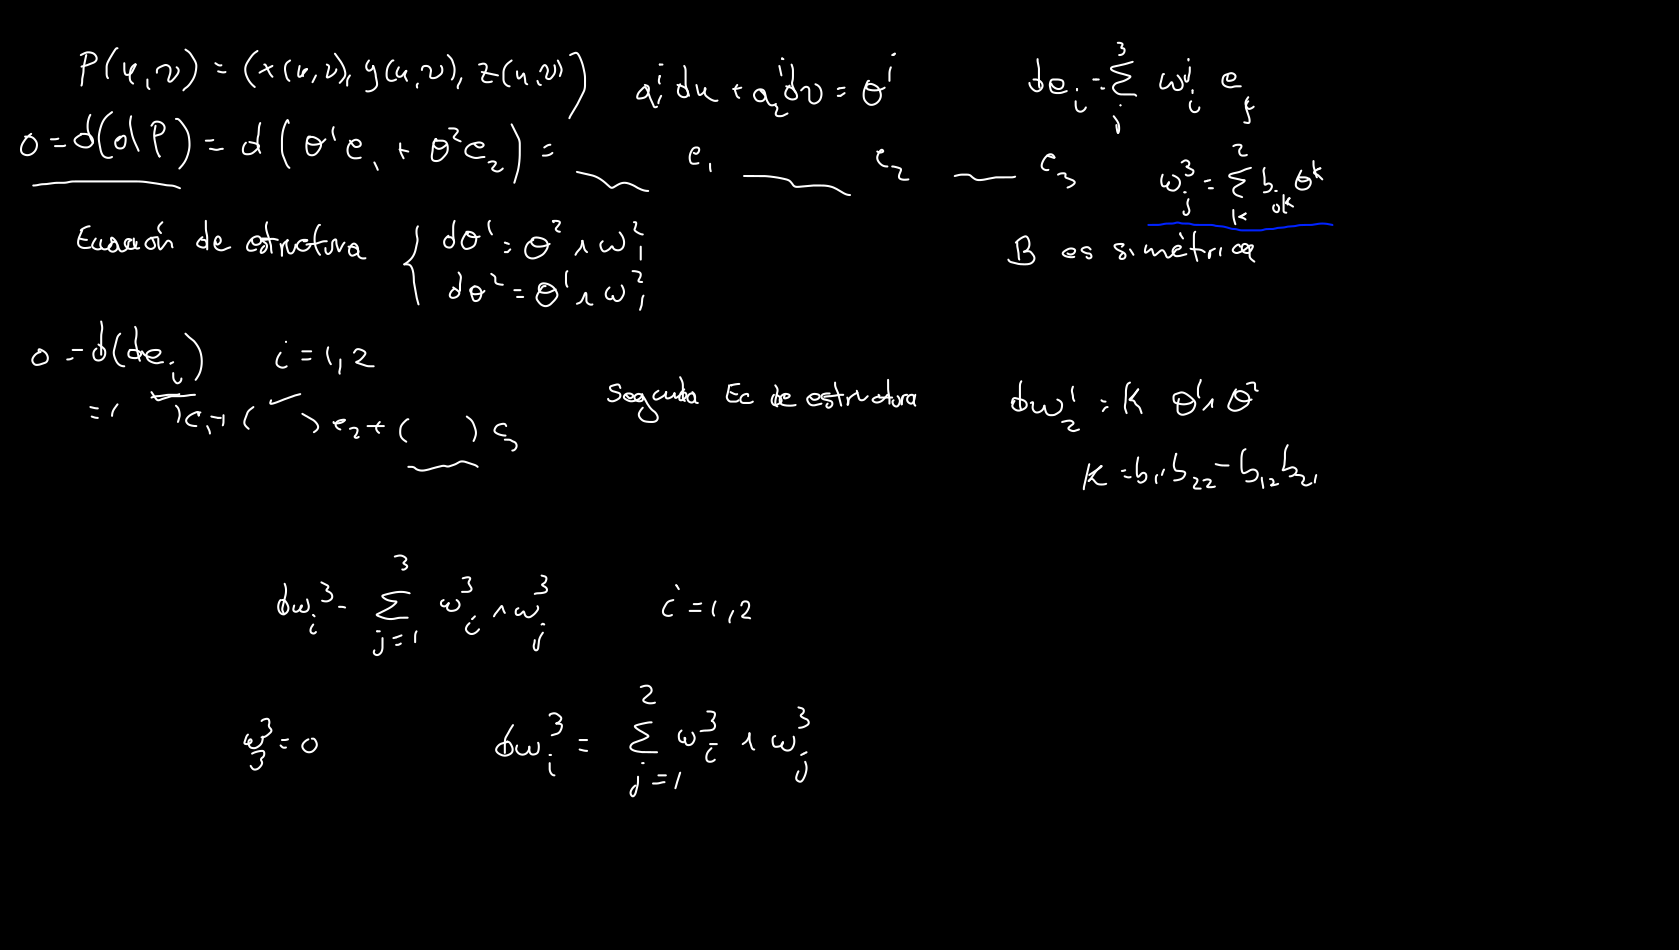 P(u,v) = (x(u,v), y(u,v), z(u,v))
a₁ⁱ du + a₂ⁱ dv = θⁱ
deᵢ = Σⱼ³ ωᵢʲ eⱼ
0 = d(dP) = d(θ¹e₁ + θ²e₂) = ___ e₁ ___ e₂ ___ e₃
ωⱼ³ = Σₖ² bⱼₖ θᵏ
Ecuación de estructura { dθ¹ = θ² ∧ ω₁²
dθ² = θ¹ ∧ ω₁²
B es simétrica
0 = d(deᵢ) i = 1, 2
= ( )e₁ + ( )e₂ + ( )e₃
Segunda Ec de estructura
dω₂¹ = K θ¹ ∧ θ²
K = b₁₁b₂₂ - b₁₂b₂₁
dωᵢ³ = Σⱼ₌₁³ ωᵢ³ ∧ ωⱼ³ i = 1, 2
ω₃³ = 0 dωᵢ³ = Σⱼ₌₁² ωᵢ³ ∧ ωⱼ³